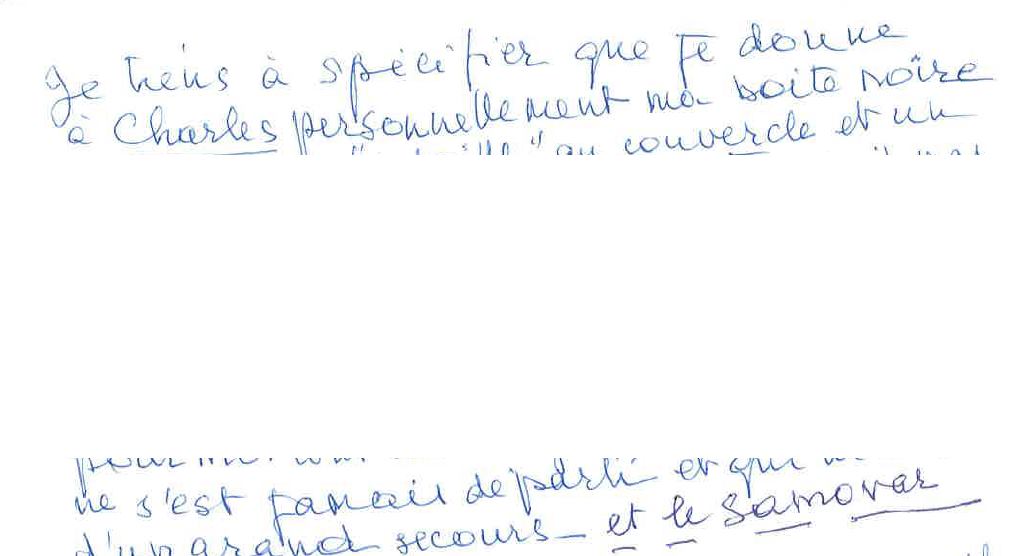 Je tiens à spécifier que je donne
à Charles personnellement ma boite noîre
au couvercle et un
et qui
ne s'est jamais departi
d'un grand secours - et le samovar